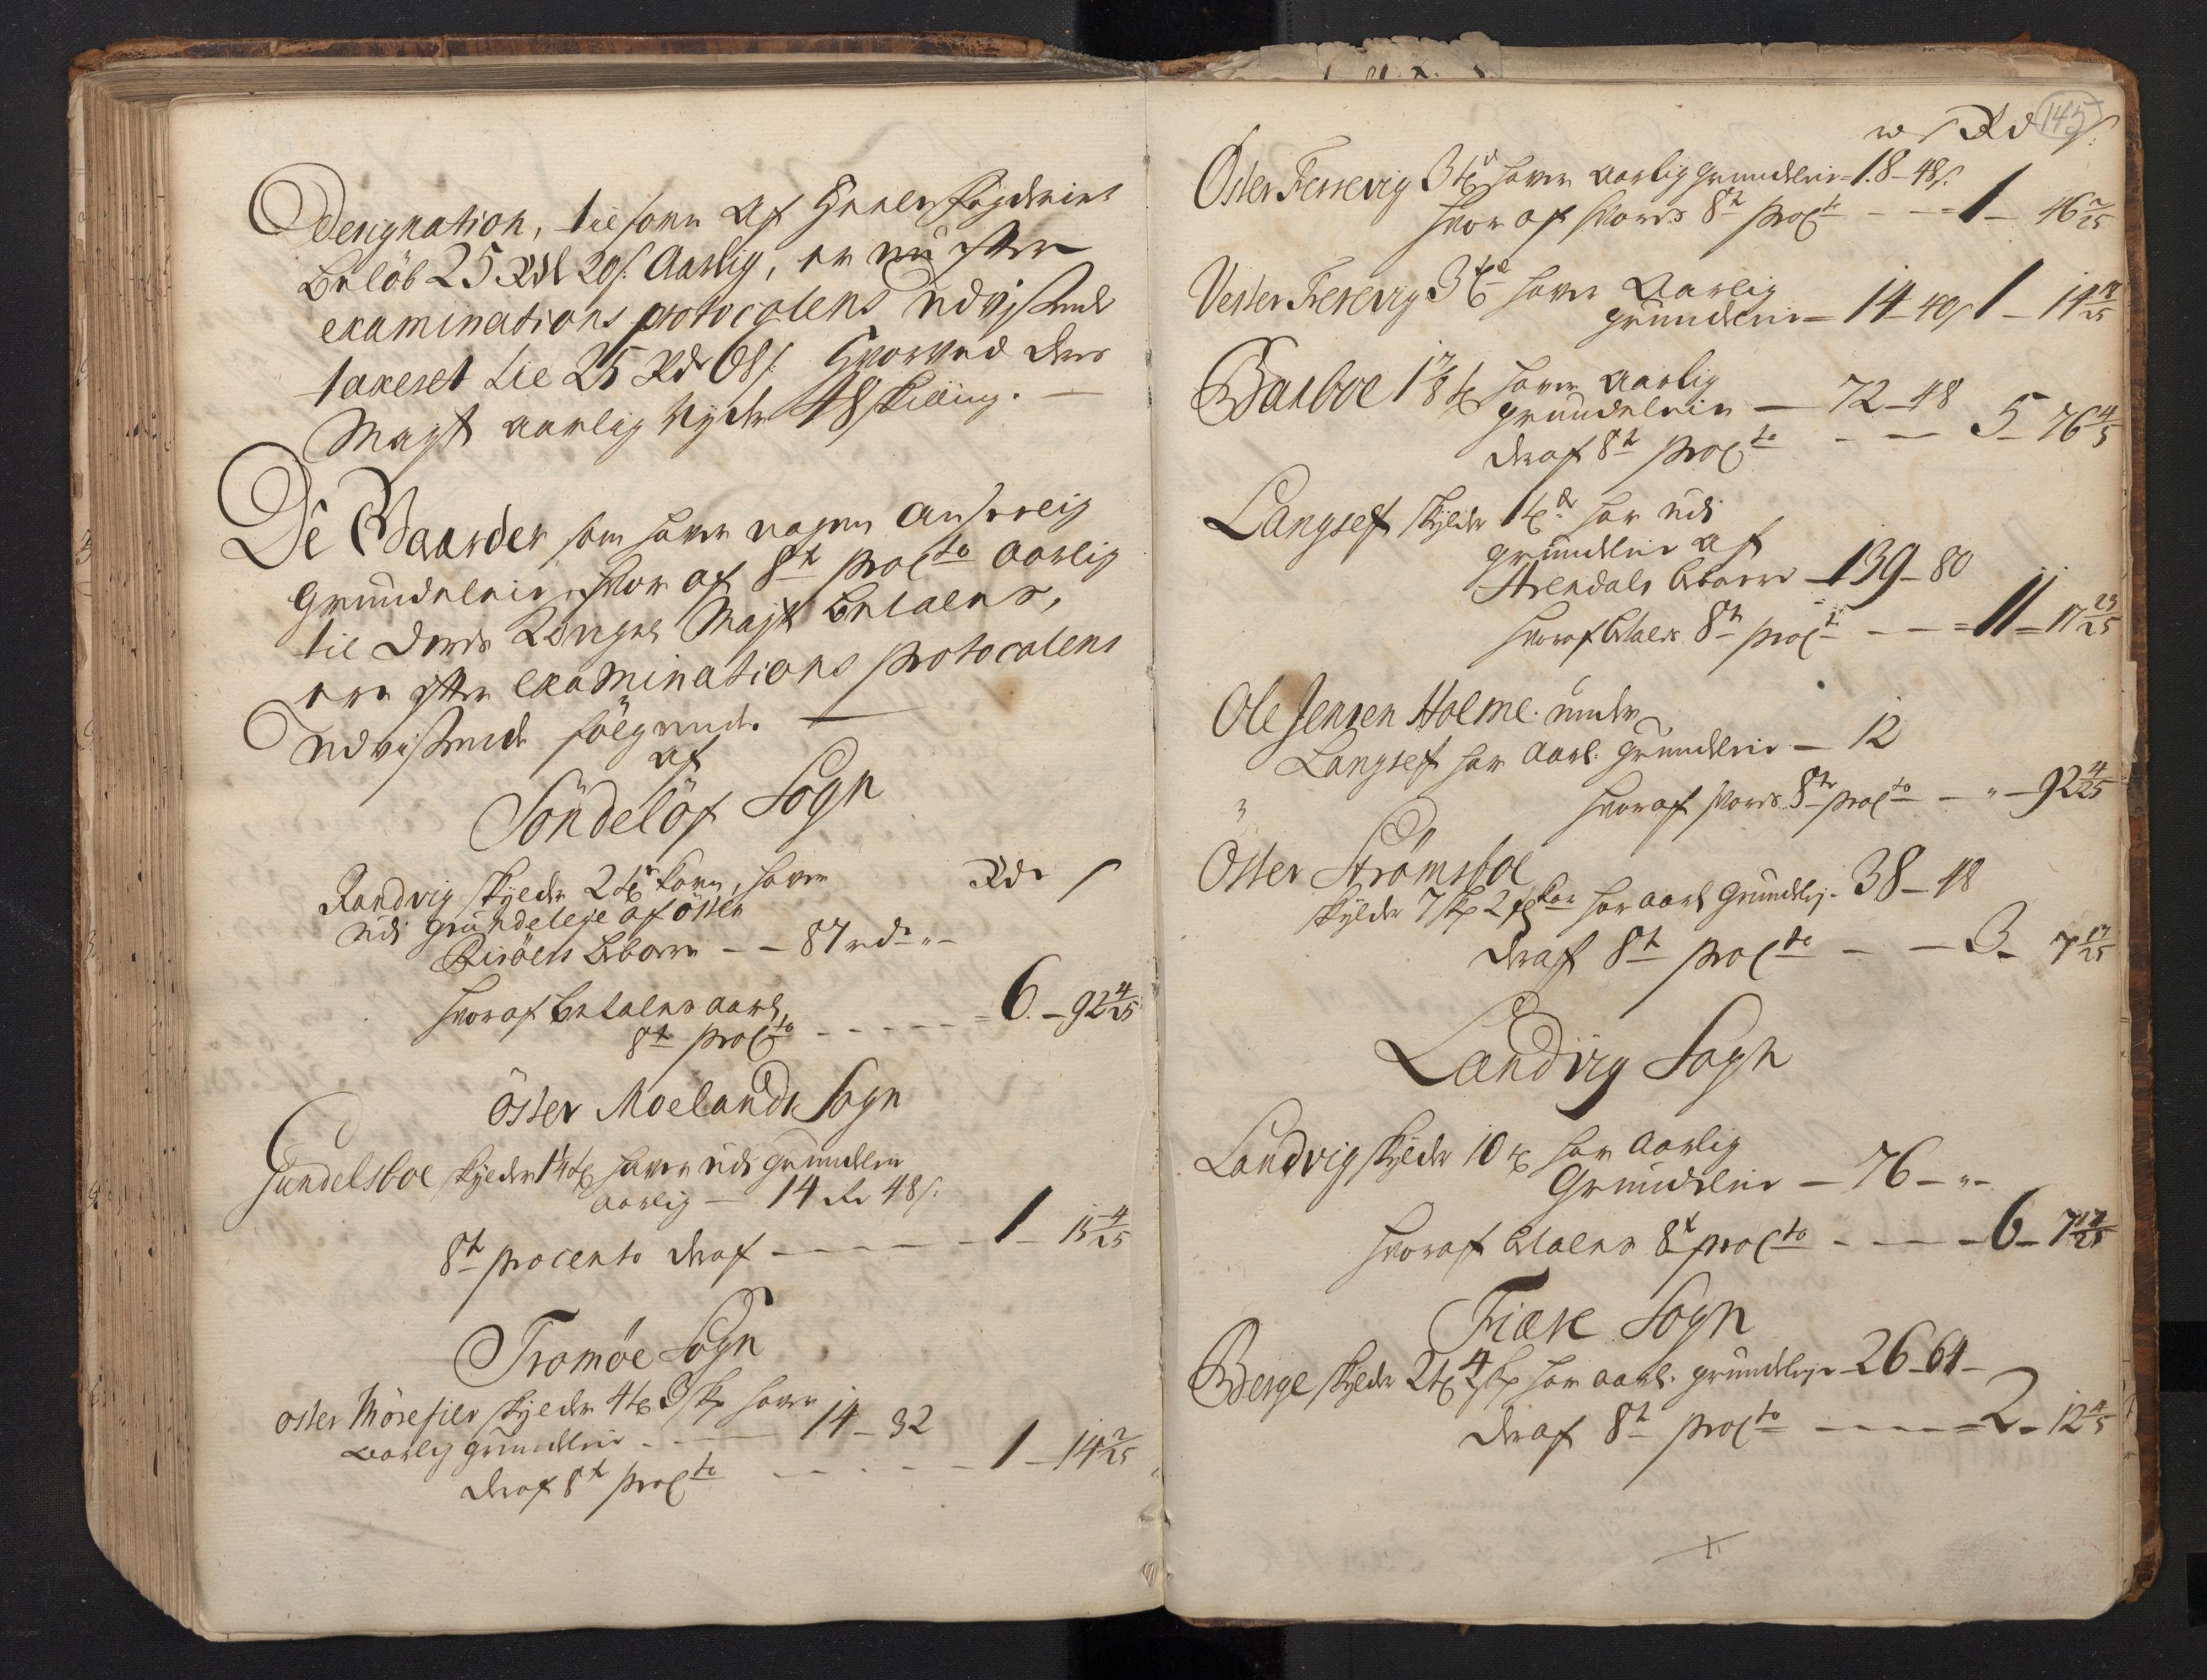 Designation, tilforn af Heele fogderiet
Beløb 25 Rdl 20 s. Aarlig, er nu efter
examinations protocollens Udviisende
taxeret til 25 Rdr 68 s. Hvorved Deris
Mayst aarlig Nyder 48 skilling. —
De Gaarder som haver nogen Anseelig
Grundeleie, hvor af 8te proCto aarlig
til Deris Konges Mayst betales,
ere efter Examinations protocolens
Udviisende følgende. —
af
Söndelöf Sogn
Rdr s
Randvig skylder 2 tdr korn, haver
udi grundeleje af öster
Risöers Eboere — 87 rdr „ —
hvoraf betales aarl.
8te proCto - - - - - 6. — 92 4/25
Öster Moelands Sogn
Gundelsboe skylder 1 1/4 td haver udi grundleie
aarlig — 14 Rd 48 s.
8te procento deraf - - - - 1 — 15 4/25
Tromöe Sogn
öster Mörefier skylder 4 td 3 skp haver
aarlig grundleie - - 14 — 32
deraf 8te proCto - - - - - 1 — 14 2/25
145
Rd s.
Öster Tessevig 3 td haver aarlig grundleie = 18 — 48 s.
hvor af svaris 8te proCto - - = 1 — 46 2/25
Vester Tesevig 3 td haver Aarlig
grundleie = 14 — 40 s 1 — 14
Barboe 17/8 td haver aarlig
grundeleie — 72 — 48
deraf 8te proCto - — 5 — 76 4/5
Langsef skylder 1 td har udi
grundleie af
Arendals Eboere — 139 — 80
hvoraf betales 8te proCto - - - = 11 = 17 23/25
Ole Jensen Holme under
Langsef har aarl. Grundleie — 12
hvoraf svaris 8te proCto - „ — 92 4/25
Öster Strömsboe
skylder 7 skp 2 har aarl Grundlej. 38 — 48
deraf 8te proCto - — 3 — 7 17/25
Landvig Sogn
Landvig skylder 10 td har aarlig
Grundleie — 76 — „ —
hvoraf betales 8te proCto - - - - 6 — 7 17/25
Fiære Sogn
Berge skylder 2 td 4 skp har aarl. grundleje — 26 — 64 —
deraf 8te proCto - - - - = 2 — 12 4/5